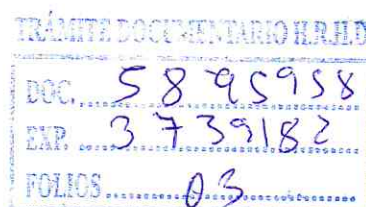 TRÁMITE DOCUMENTARIO H.R.H.D
DOC. 5895958
EXP. 3739182
FOLIOS 03